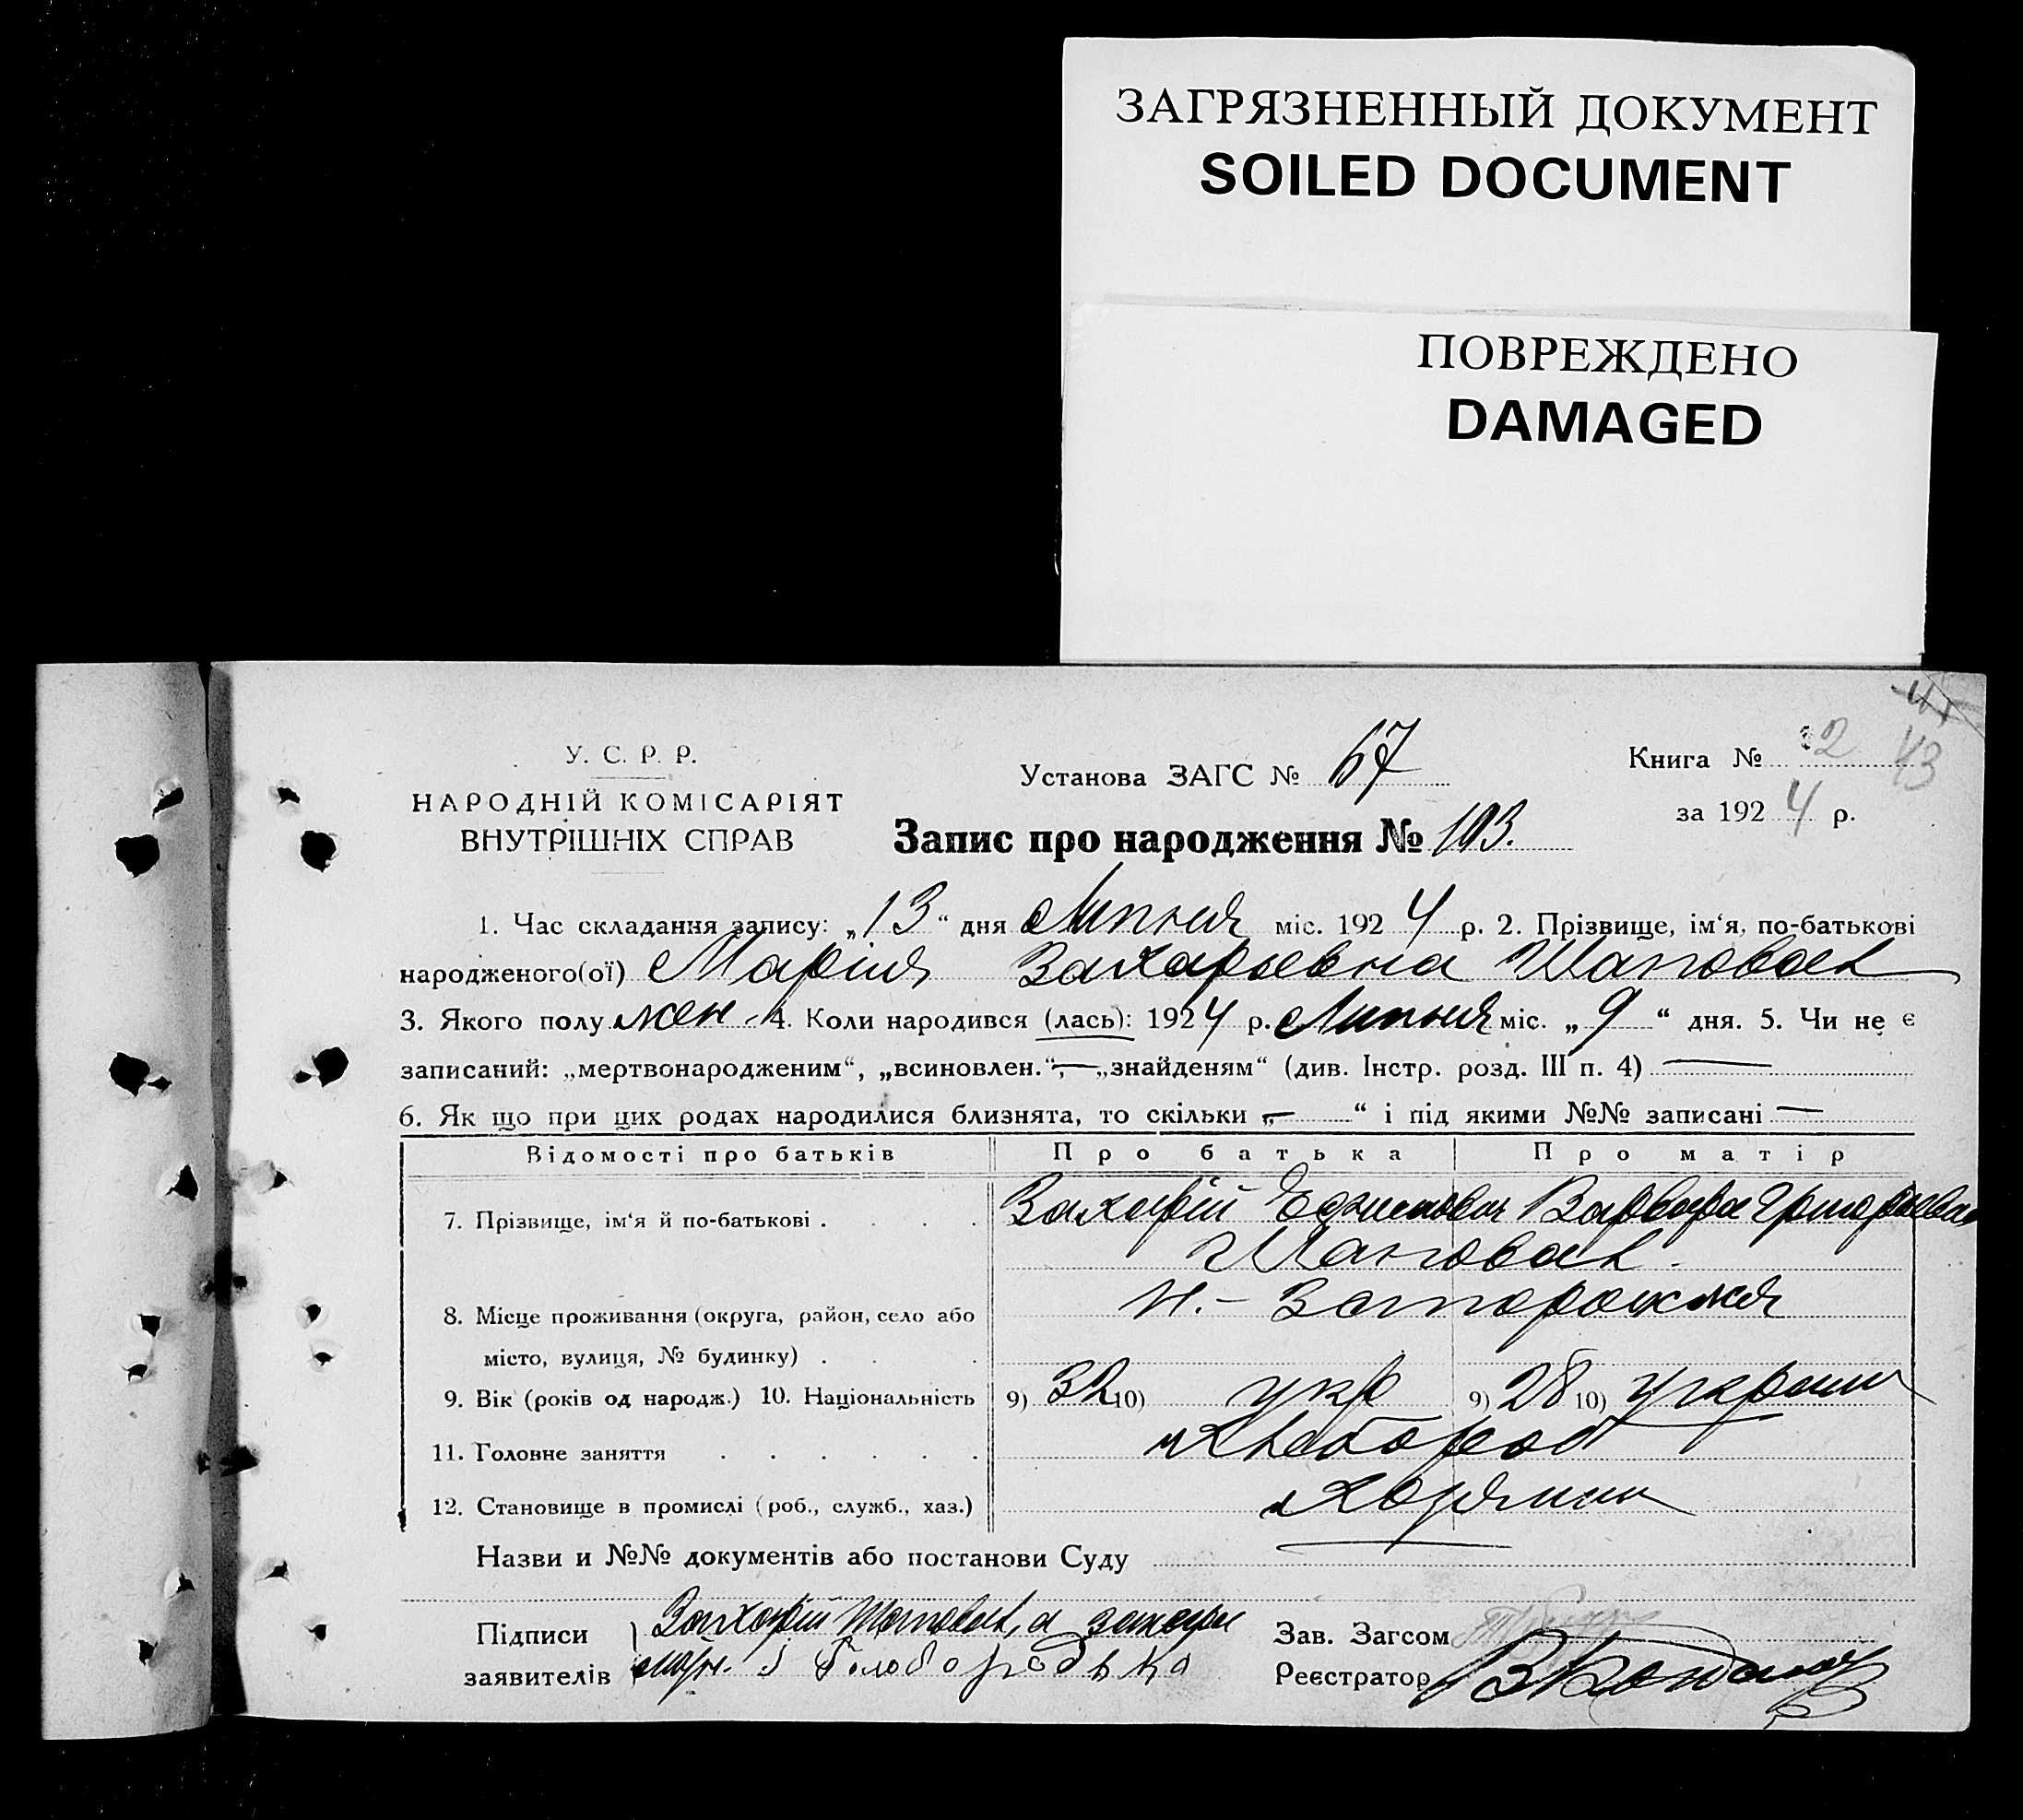 ЗАГРЯЗНЕННЫЙ ДОКУМЕНТ
SOILED DOCUMENT
ПОВРЕЖДЕНО
DAMAGED
У. С. Р. Р.
НАРОДНІЙ КОМІСАРІЯТ
ВНУТРІШНІХ СПРАВ
Установа ЗАГС № 67
Запис про народження № 103.
Книга № 2 43
за 1924 р.
1. Час складання запису: „13“ дня Липня міс. 1924 р. 2. Прізвище, ім‘я, по-батькові
народженого(ої) Марія Захарьевна Шаповал
3. Якого полу жен. 4. Коли народився (лась): 1924 р. Липня міс. „9“ дня. 5. Чи не є
записаний: „мертвонародженим“, „всиновлен.“, — „знайденям“ (див. Інстр. розд. III п. 4) —
6. Як що при цих родах народилися близнята, то скільки „—“ і під якими №№ записані —
Відомості про батьків Про батька Про матір
7. Прізвище, ім‘я й по-батькові . . . . Захарій Варвара
Шаповал
8. Місце проживання (округа, район, село або Н.-
місто, вулиця, № будинку) . . .
9. Вік (років од народж.) 10. Національність 9) 32 10) укр 9) 28 10)
11. Головне заняття . . . . . . Хлебороб
12. Становище в промислі (роб., служб., хаз.)
Назви и №№ документів або постанови Суду
Підписи Захарій Шаповал, а
заявителів Білобородько
Зав. Загсом
Реєстратор